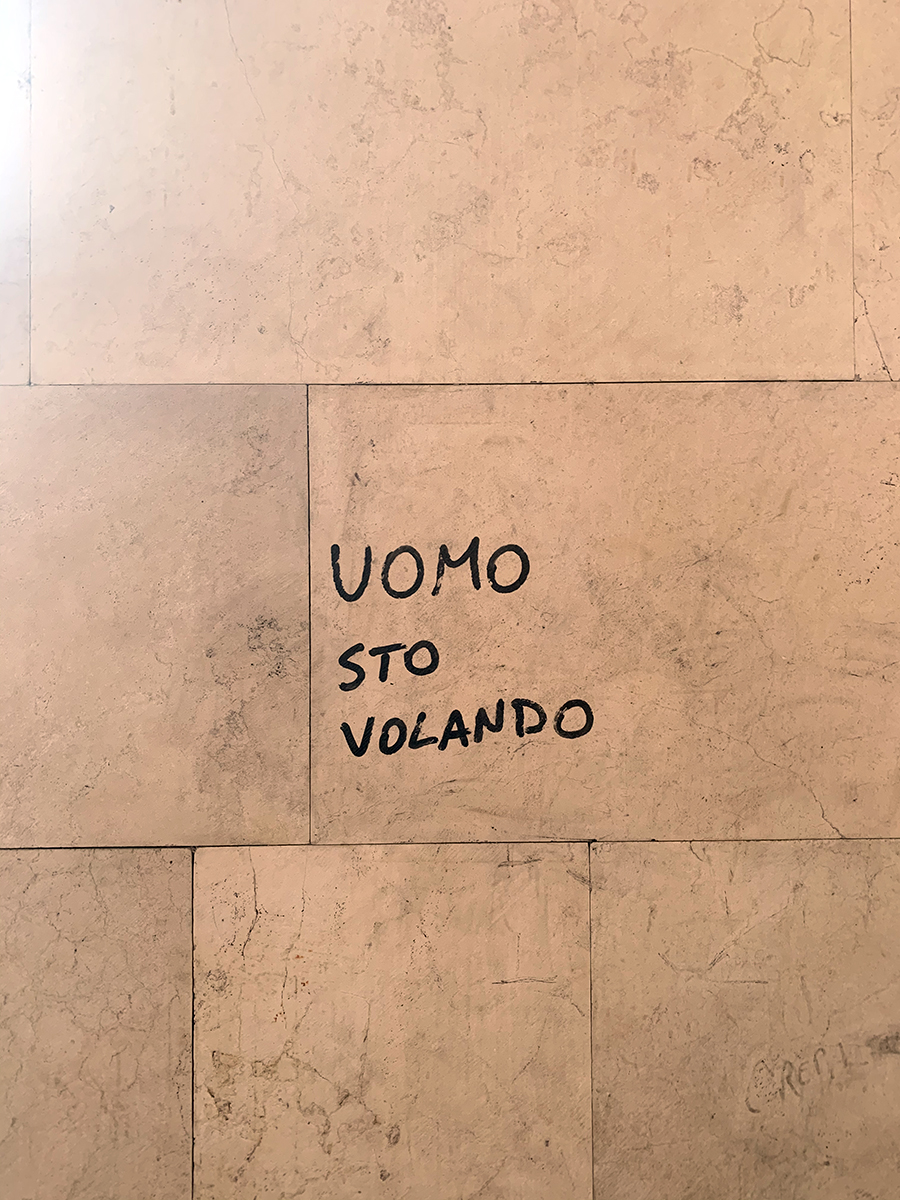 UOMO
STO
VOLANDO